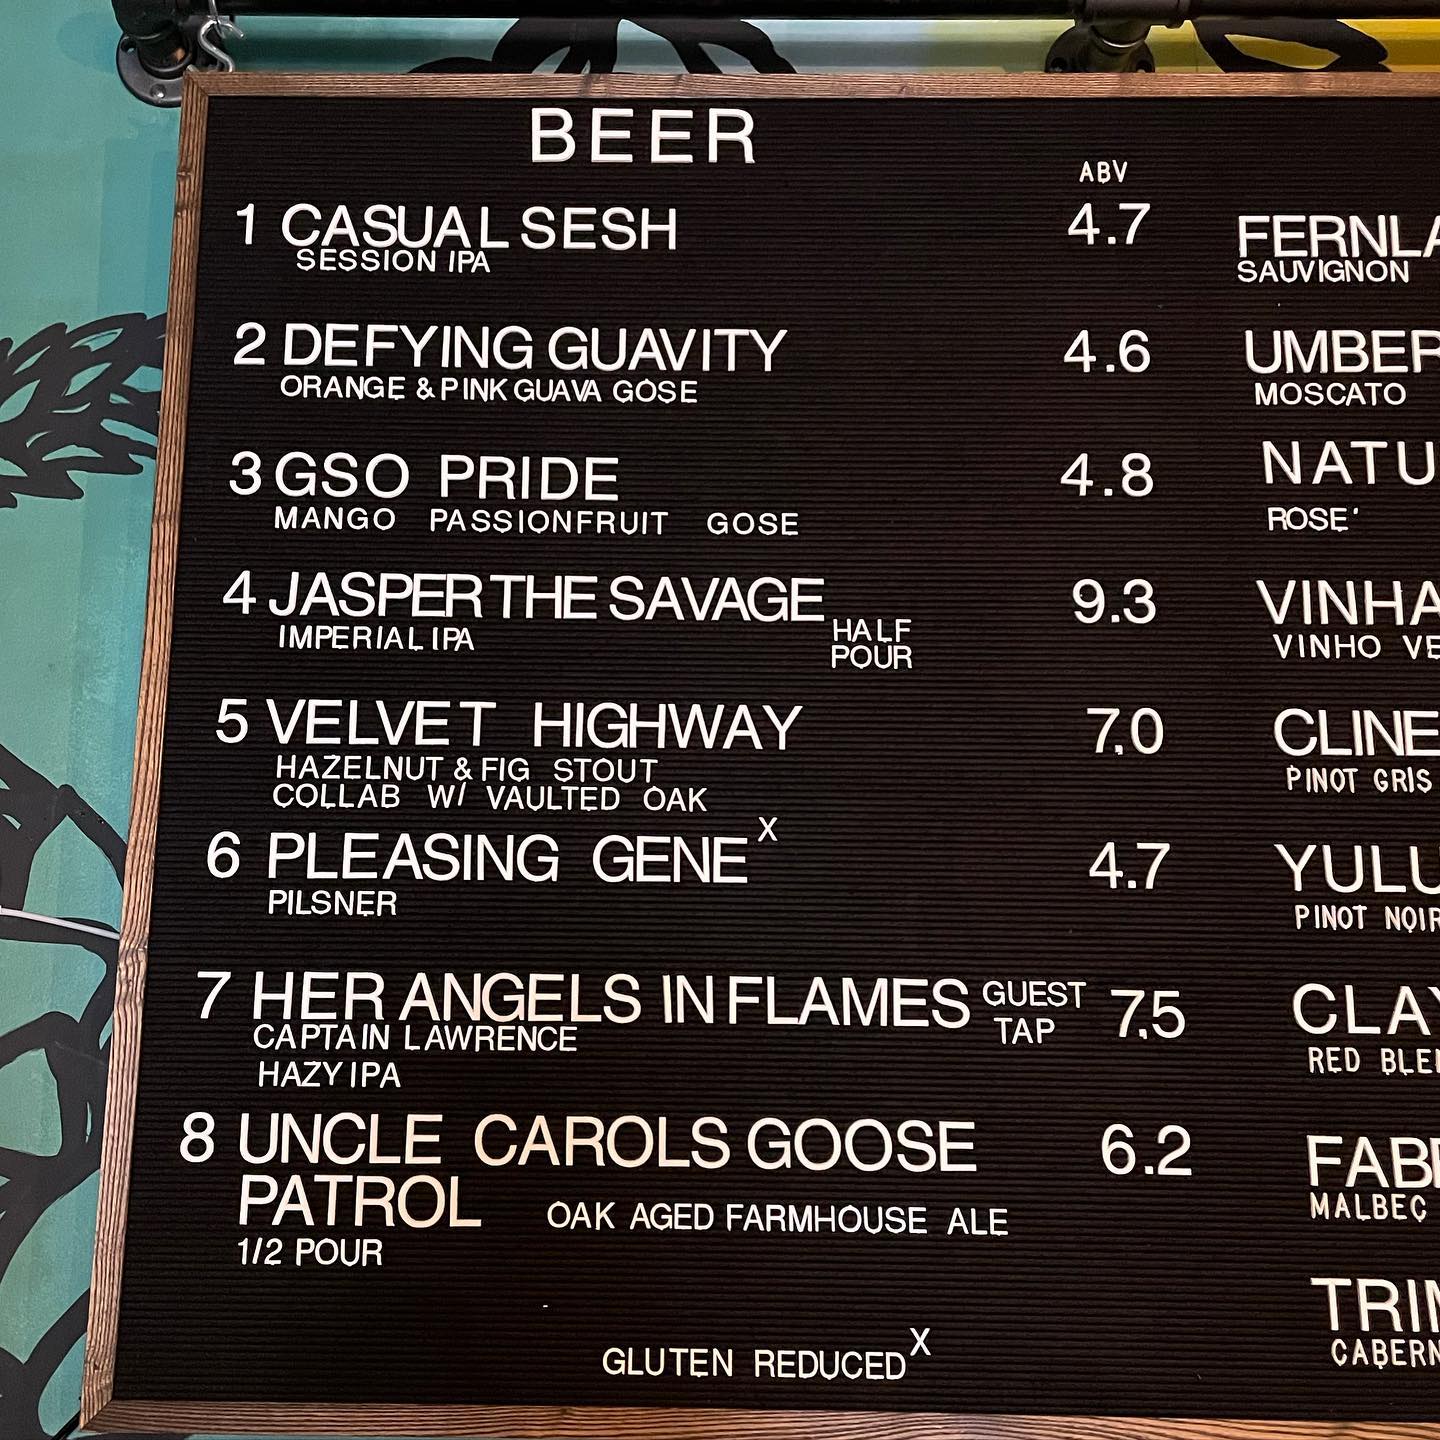 BEER
ABV
1 CASUAL SESH 4.7
SESSION IPA
2 DEFYING GUAVITY 4.6
ORANGE & PINK GUAVA GOSE
3 GSO PRIDE 4.8
MANGO PASSIONFRUIT GOSE
4 JASPER THE SAVAGE 9.3
IMPERIAL IPA
HALF
POUR
5 VELVET HIGHWAY 7.0
HAZELNUT & FIG STOUT
COLLAB W/ VAULTED OAK
6 PLEASING GENE X 4.7
PILSNER
7 HER ANGELS IN FLAMES GUEST TAP 7.5
CAPTAIN LAWRENCE
HAZY IPA
8 UNCLE CAROLS GOOSE 6.2
PATROL OAK AGED FARMHOUSE ALE
1/2 POUR
GLUTEN REDUCED X
SAUVIGNON
MOSCATO
ROSE'
VINHO
CLINE
PINOT GRIS
PINOT NOIR
RED
MALBEC